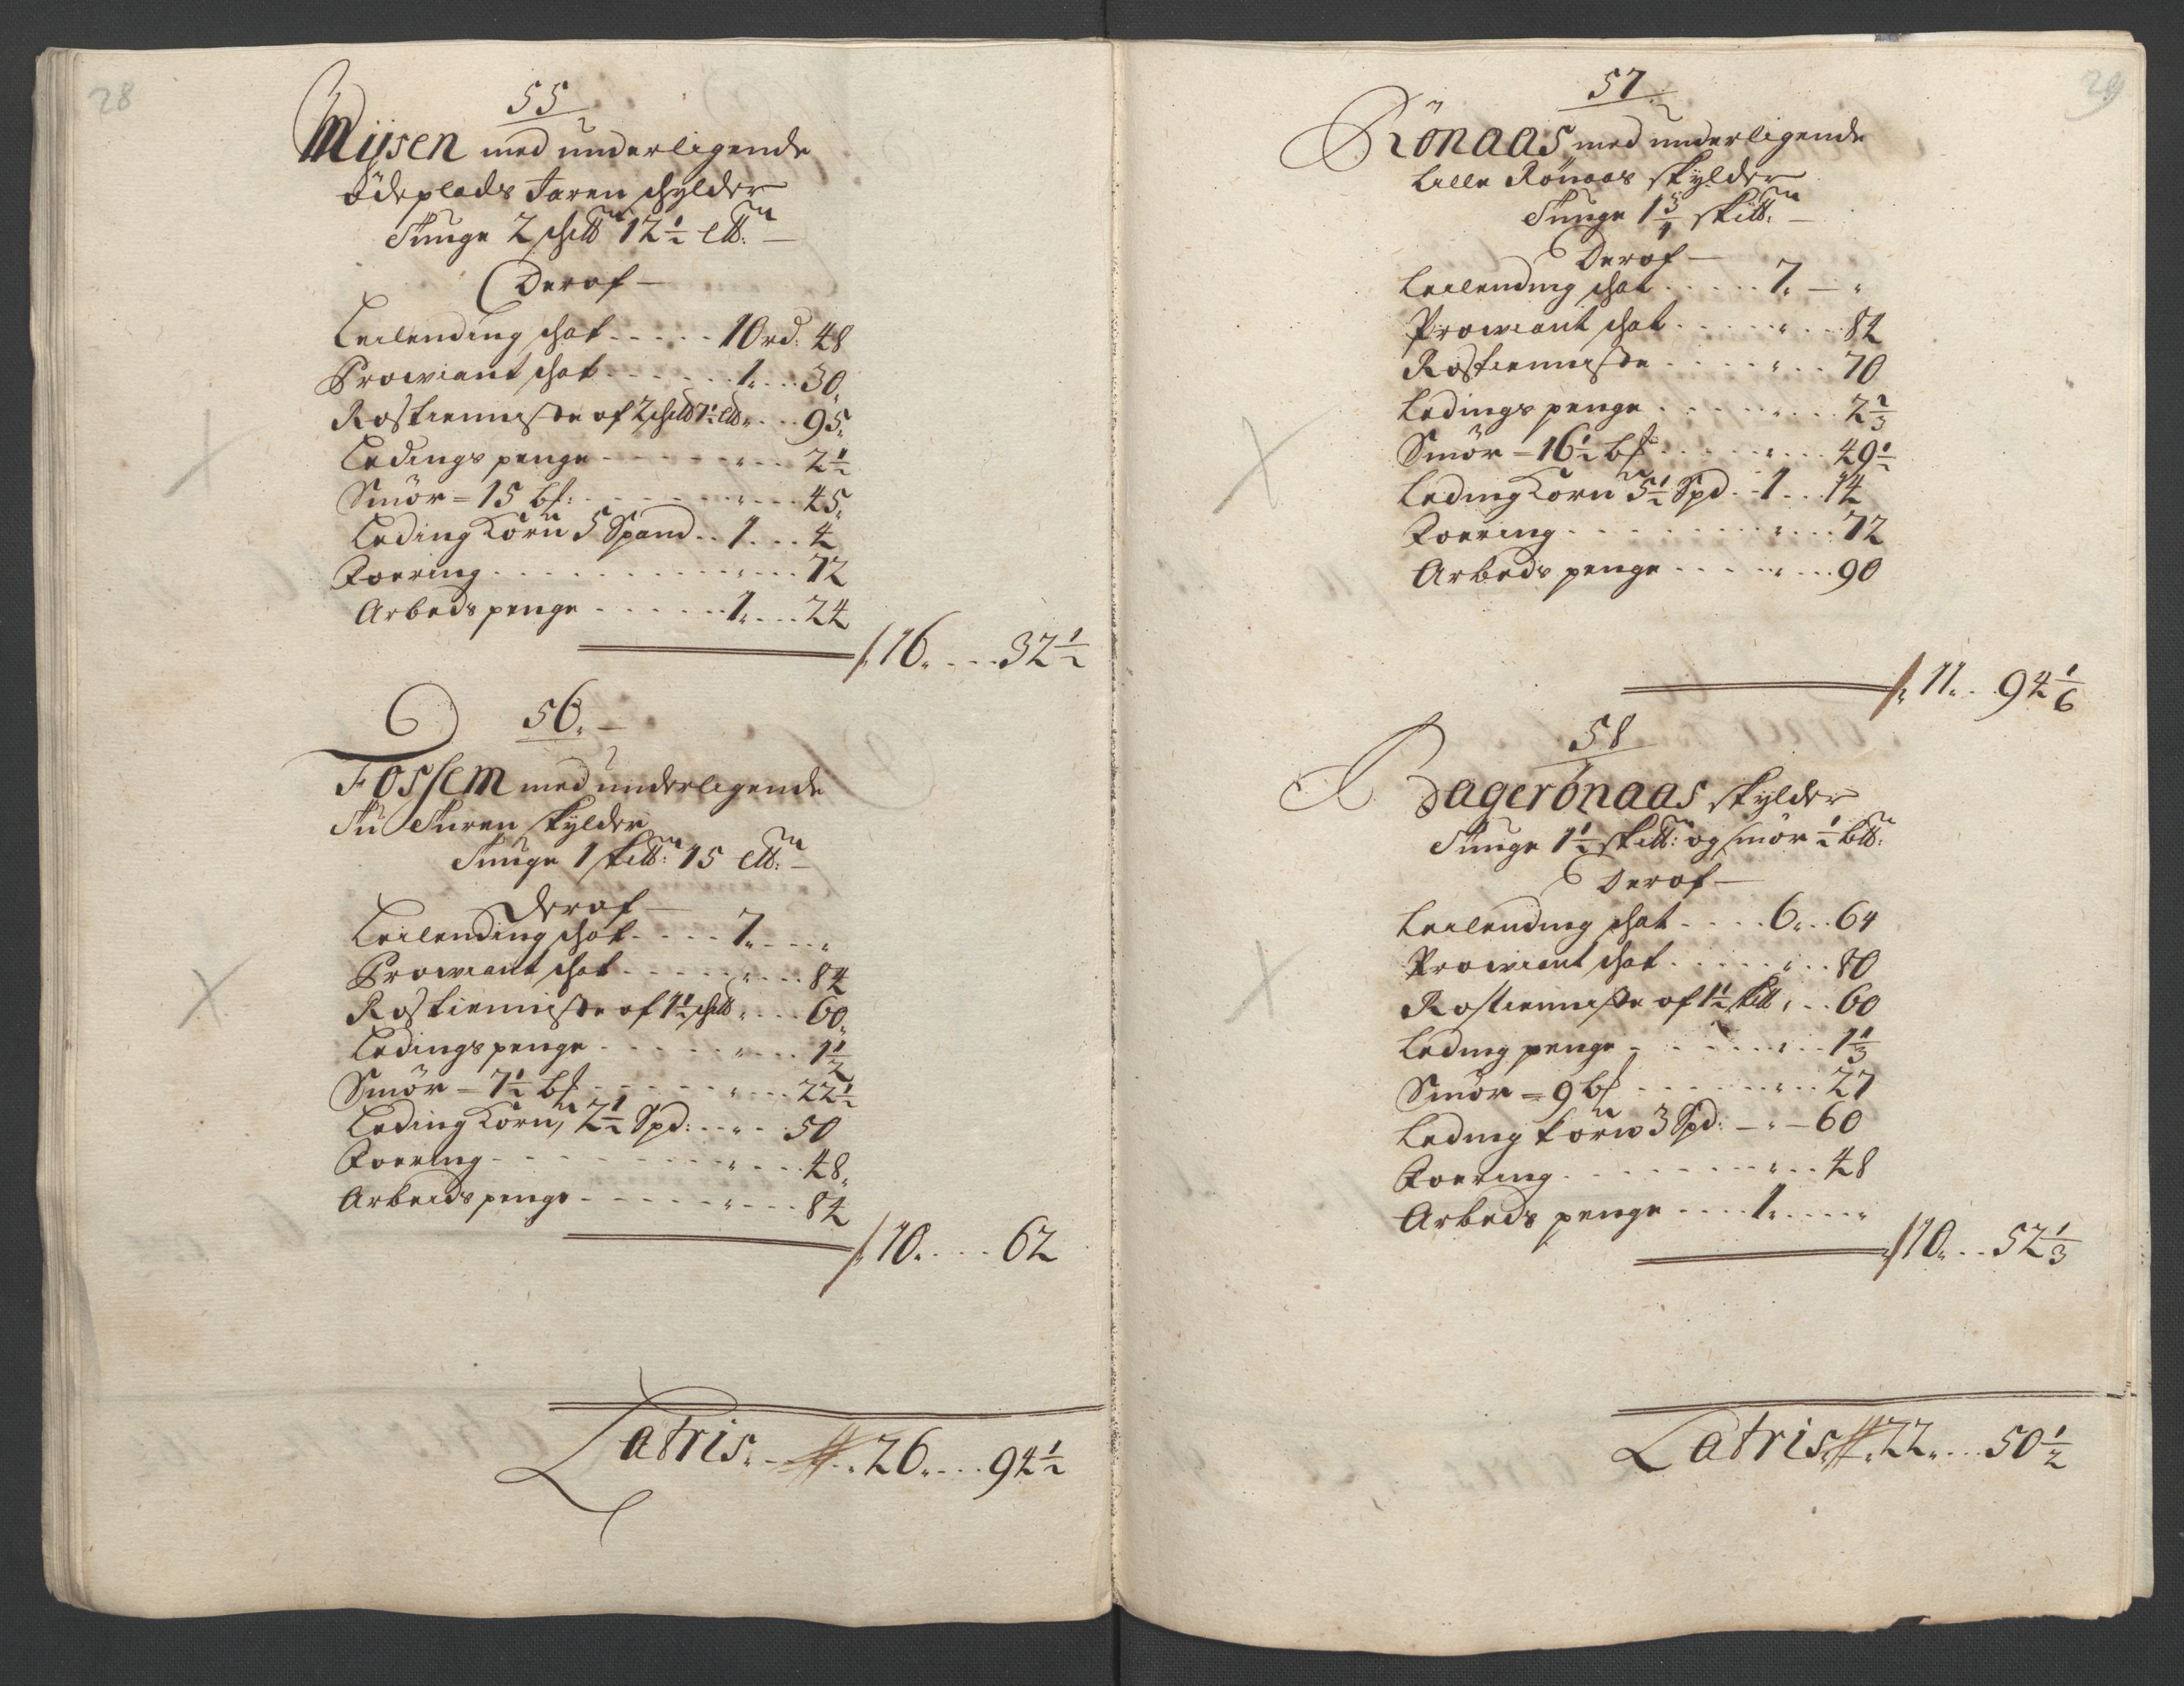 28
55
Miisen med underligende
ödeplads Jaren schylder
Tunge 2 schlb 12½ lb:
Deraf
Leilending schat - - - - - 10 rd: 48
Prowiant schat - - - - - - 1 - - - 30
Rostieniste af 2 schlb 7½ lb - - - 95
Ledings penge - - - - - - - - - 2½
Smör = 15 bf: - - - - - - - - - 45
Leding Korn 5 Spand - - 1 - - - 4
Foering - - - - - - - - - - - - 72
Arbeds penge - - - - - - 1 - - - 24
16 - - - - 32½
56
Fossem med underligende
Tu Turen skylder
Tunge 1 sklb: 15 lb:
Deraf
Leilending schat - - - - 7 - - - „
Prowiant schat - - - - - „ - - - 84
Rostieniste af 1½ schlb „ - - - 60
Ledings penge - - - - - „ - - - 1½
Smör = 7½ bf - - - - - „ - - - 22½
Leding Korn, 2½ Spd: - - „ - - 50
Foering - - - - - - - - „ - - - 48
Arbeids penge - - - - - „ - - - 84
10 - - - - 62
Latris - - 26 - - - 94½
29
57
Rönaas med underligende
Lille Rönaas skylder
Tunge 1¾ sklb:
Deraf
Leilending schat - - - - - 7 — „
Prowiant schat - - - - - „ - - - 84
Rostieniste - - - - - „ - - - 70
Ledings penge - - - - - „ - - - 2⅔
Smör = 16½ bf - - - - - „ - - - 49½
Leding Korn 5½ Spd - - 1 - - 14
Foering - - - - - - - - „ - - - 72
Arbeds penge - - - - - „ - - - 90
11 - - 94⅙
58
Bagerönaas skylder
Tunge 1½ sklb: og smör ½ blb:
Deraf
Leilending schat - - - - 6 - - 64
Prowiant schat - - - - - „ - - 80
Rostieniste af 1½ sklb „ - - 60
Leding penge - - - - - - „ - - 1⅓
Smör = 9 bf - - - - - - „ - - 27
Leding korn 3 Spd: — „ — 60
Foering - - - - - - - - „ - - 48
Arbeds penge - - - - 1 - - - - „
10 - - 52⅓
Latris 22 - - - 50½